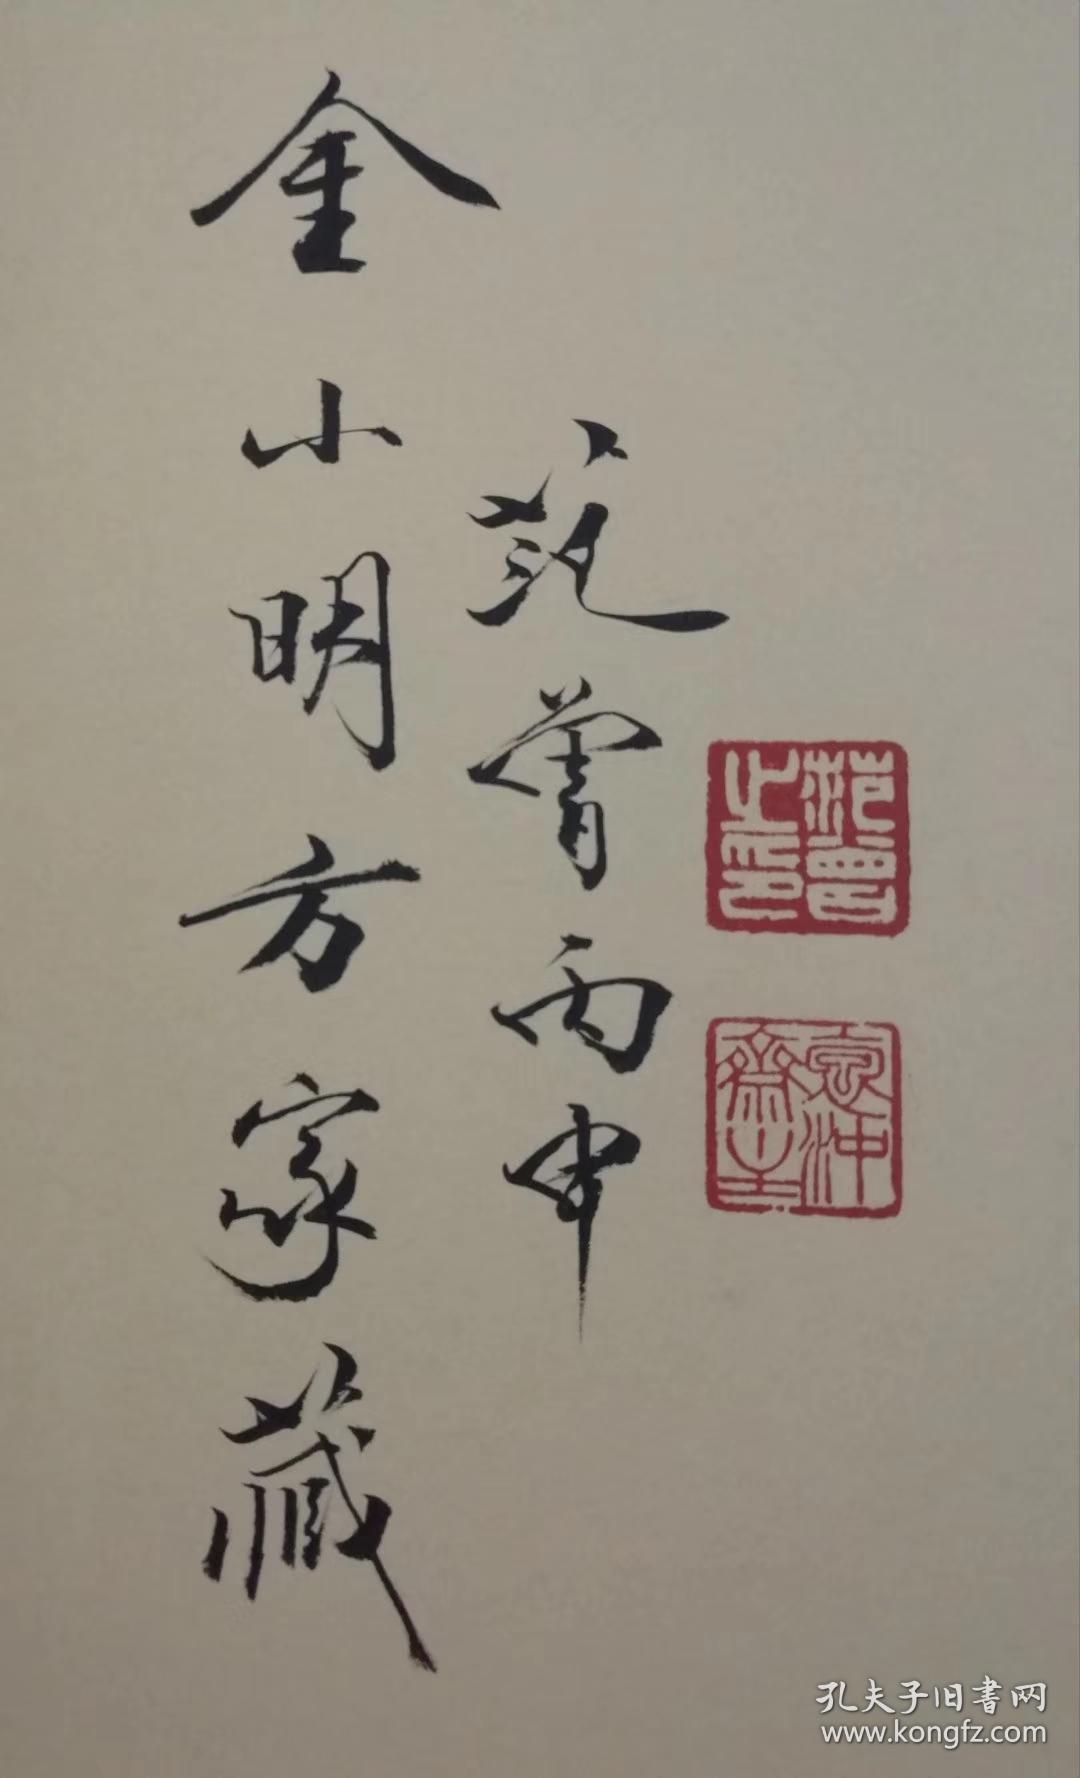 范曾丙申
金小明方家藏
范曾之印
意冲斋主
孔夫子旧书网
www.kongfz.com